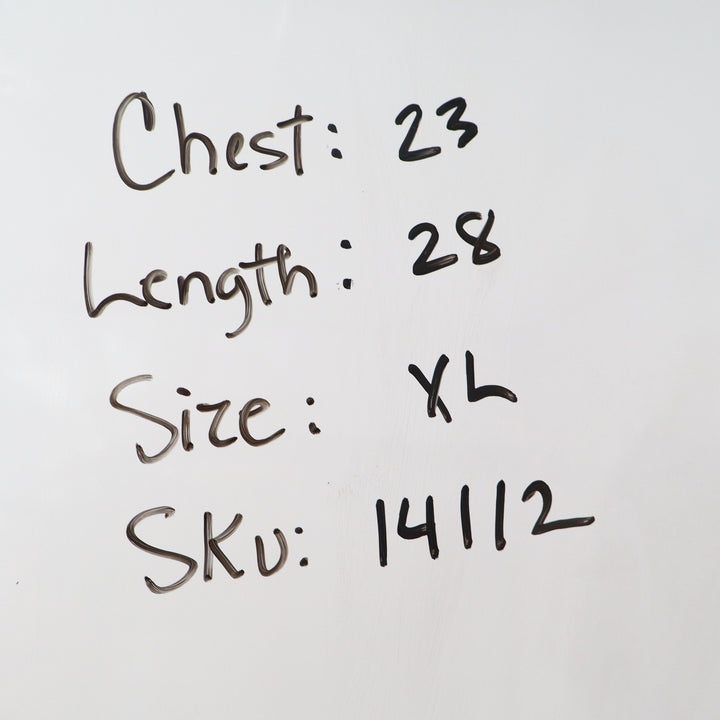 Chest: 23
Length: 28
Size: XL
SKU: 14112